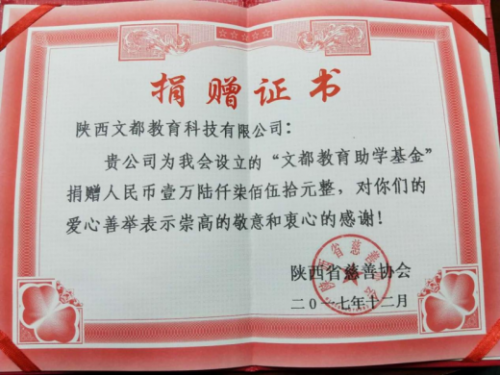 捐赠证书
陕西文都教育科技有限公司：
贵公司为我会设立的“文都教育助学基金”
捐赠人民币壹万陆仟柒佰伍拾元整，对你们的
爱心善举表示崇高的敬意和衷心的感谢！
陕西省慈善协会
二〇一七年十二月